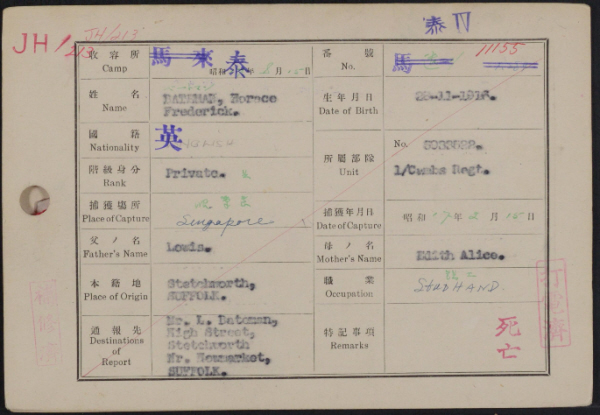 JH/213
JH/213
泰 IV
收容所
Camp
馬來 泰
昭和 年 8月15日
番號
No.
馬
11155
姓名
Name
BATEMAN, Horace
Frederick.
生年月日
Date of Birth
國籍
Nationality
英
階級身分
Rank
Private.
所屬部隊
Unit
No.
1/Cambs Regt.
捕獲場所
Place of Capture
Singapore
捕獲年月日
Date of Capture
昭和 17年 2月 15日
父ノ名
Father's Name
Louis.
母ノ名
Mother's Name
Edith Alice.
本籍地
Place of Origin
Stetchworth,
SUFFOLK.
職業
Occupation
STUD HAND.
通報先
Destinations
of
Report
Mr. L. Bateman,
High Street,
Stetchworth
Nr. Newmarket,
SUFFOLK.
特記事項
Remarks
死亡